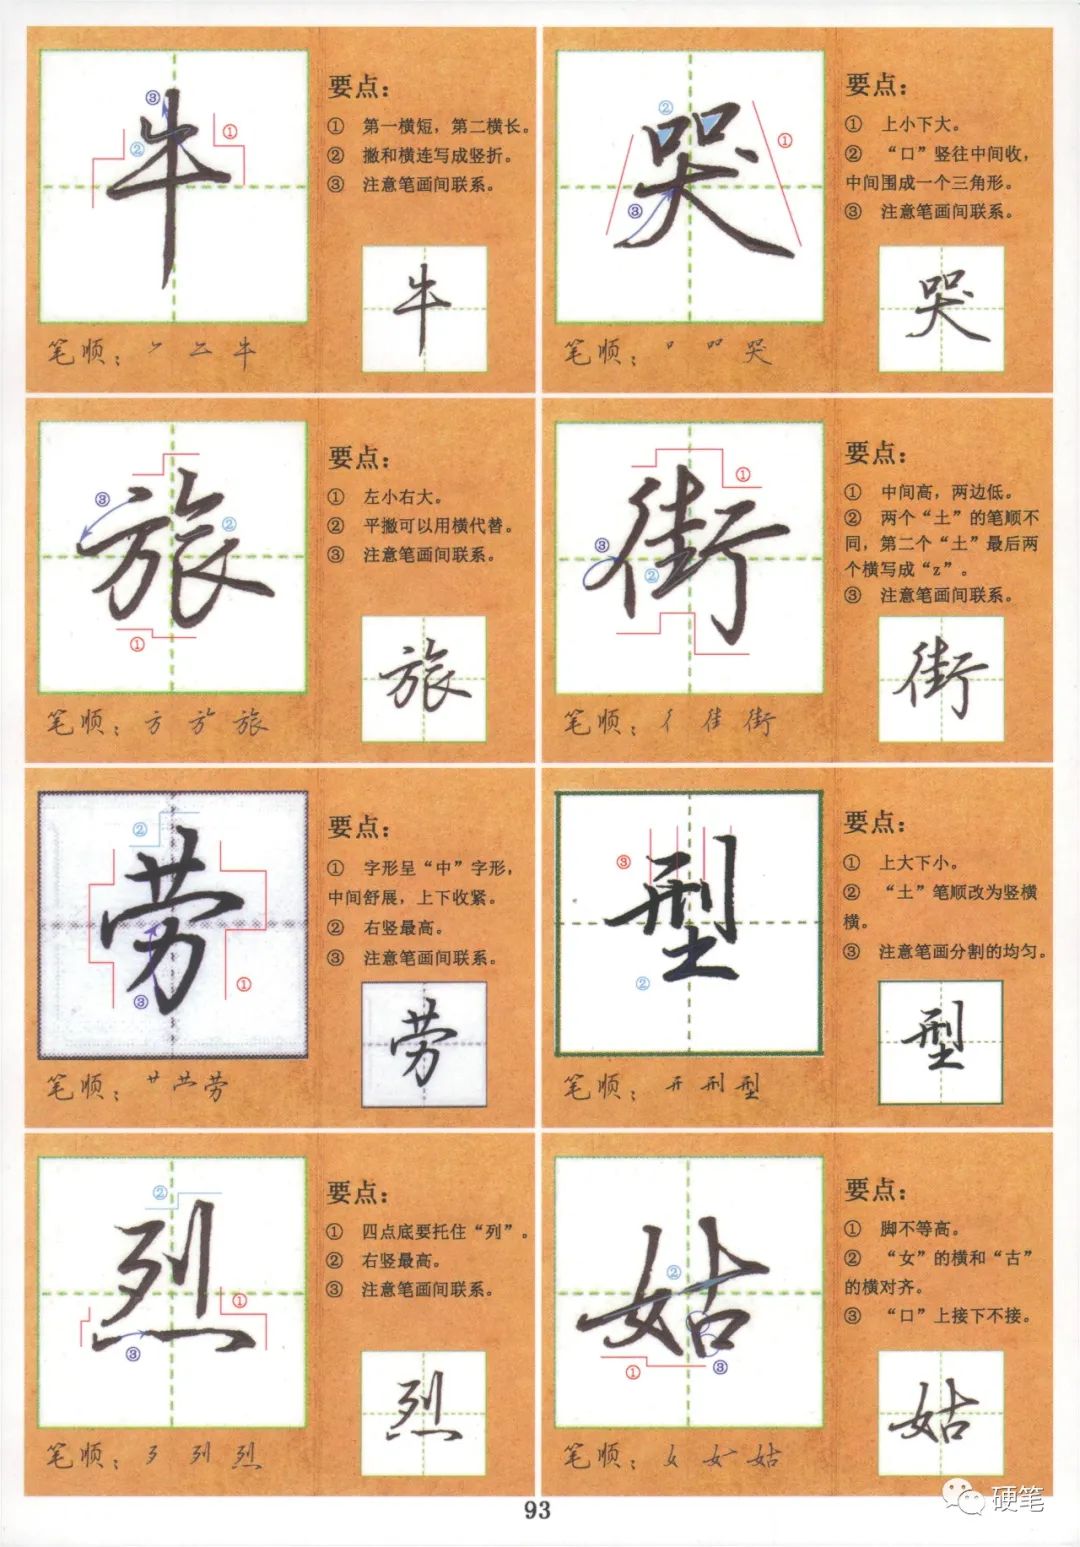 牛
③
①
②
要点：
① 第一横短，第二横长。
② 撇和横连写成竖折。
③ 注意笔画间联系。
牛
笔顺：牛
哭
②
①
③
要点：
① 上小下大。
② “口”竖往中间收，
中间围成一个三角形。
③ 注意笔画间联系。
哭
笔顺：哭
旅
③
②
①
要点：
① 左小右大。
② 平撇可以用横代替。
③ 注意笔画间联系。
旅
笔顺：方 旅
街
①
③
②
要点：
① 中间高，两边低。
② 两个“土”的笔顺不
同，第二个“土”最后两
个横写成“z”。
③ 注意笔画间联系。
街
笔顺：彳 街
劳
②
①
③
要点：
① 字形呈“中”字形，
中间舒展，上下收紧。
② 右竖最高。
③ 注意笔画间联系。
劳
笔顺：艹 劳
型
③
②
要点：
① 上大下小。
② “土”笔顺改为竖横
横。
③ 注意笔画分割的均匀。
型
笔顺：开 刑 型
烈
②
①
③
要点：
① 四点底要托住“列”。
② 右竖最高。
③ 注意笔画间联系。
烈
笔顺：歹 列 烈
姑
②
①
③
要点：
① 脚不等高。
② “女”的横和“古”
的横对齐。
③ “口”上接下不接。
姑
笔顺：姑
93
硬笔